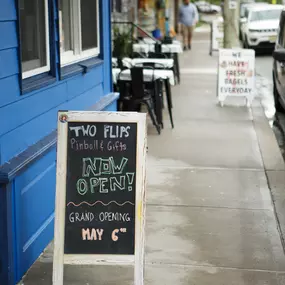 TWO FLIPS
Pinball & Gifts
NOW
OPEN!
GRAND OPENING
MAY 6TH
WE
HAVE
FRESH
BAGELS
EVERYDAY